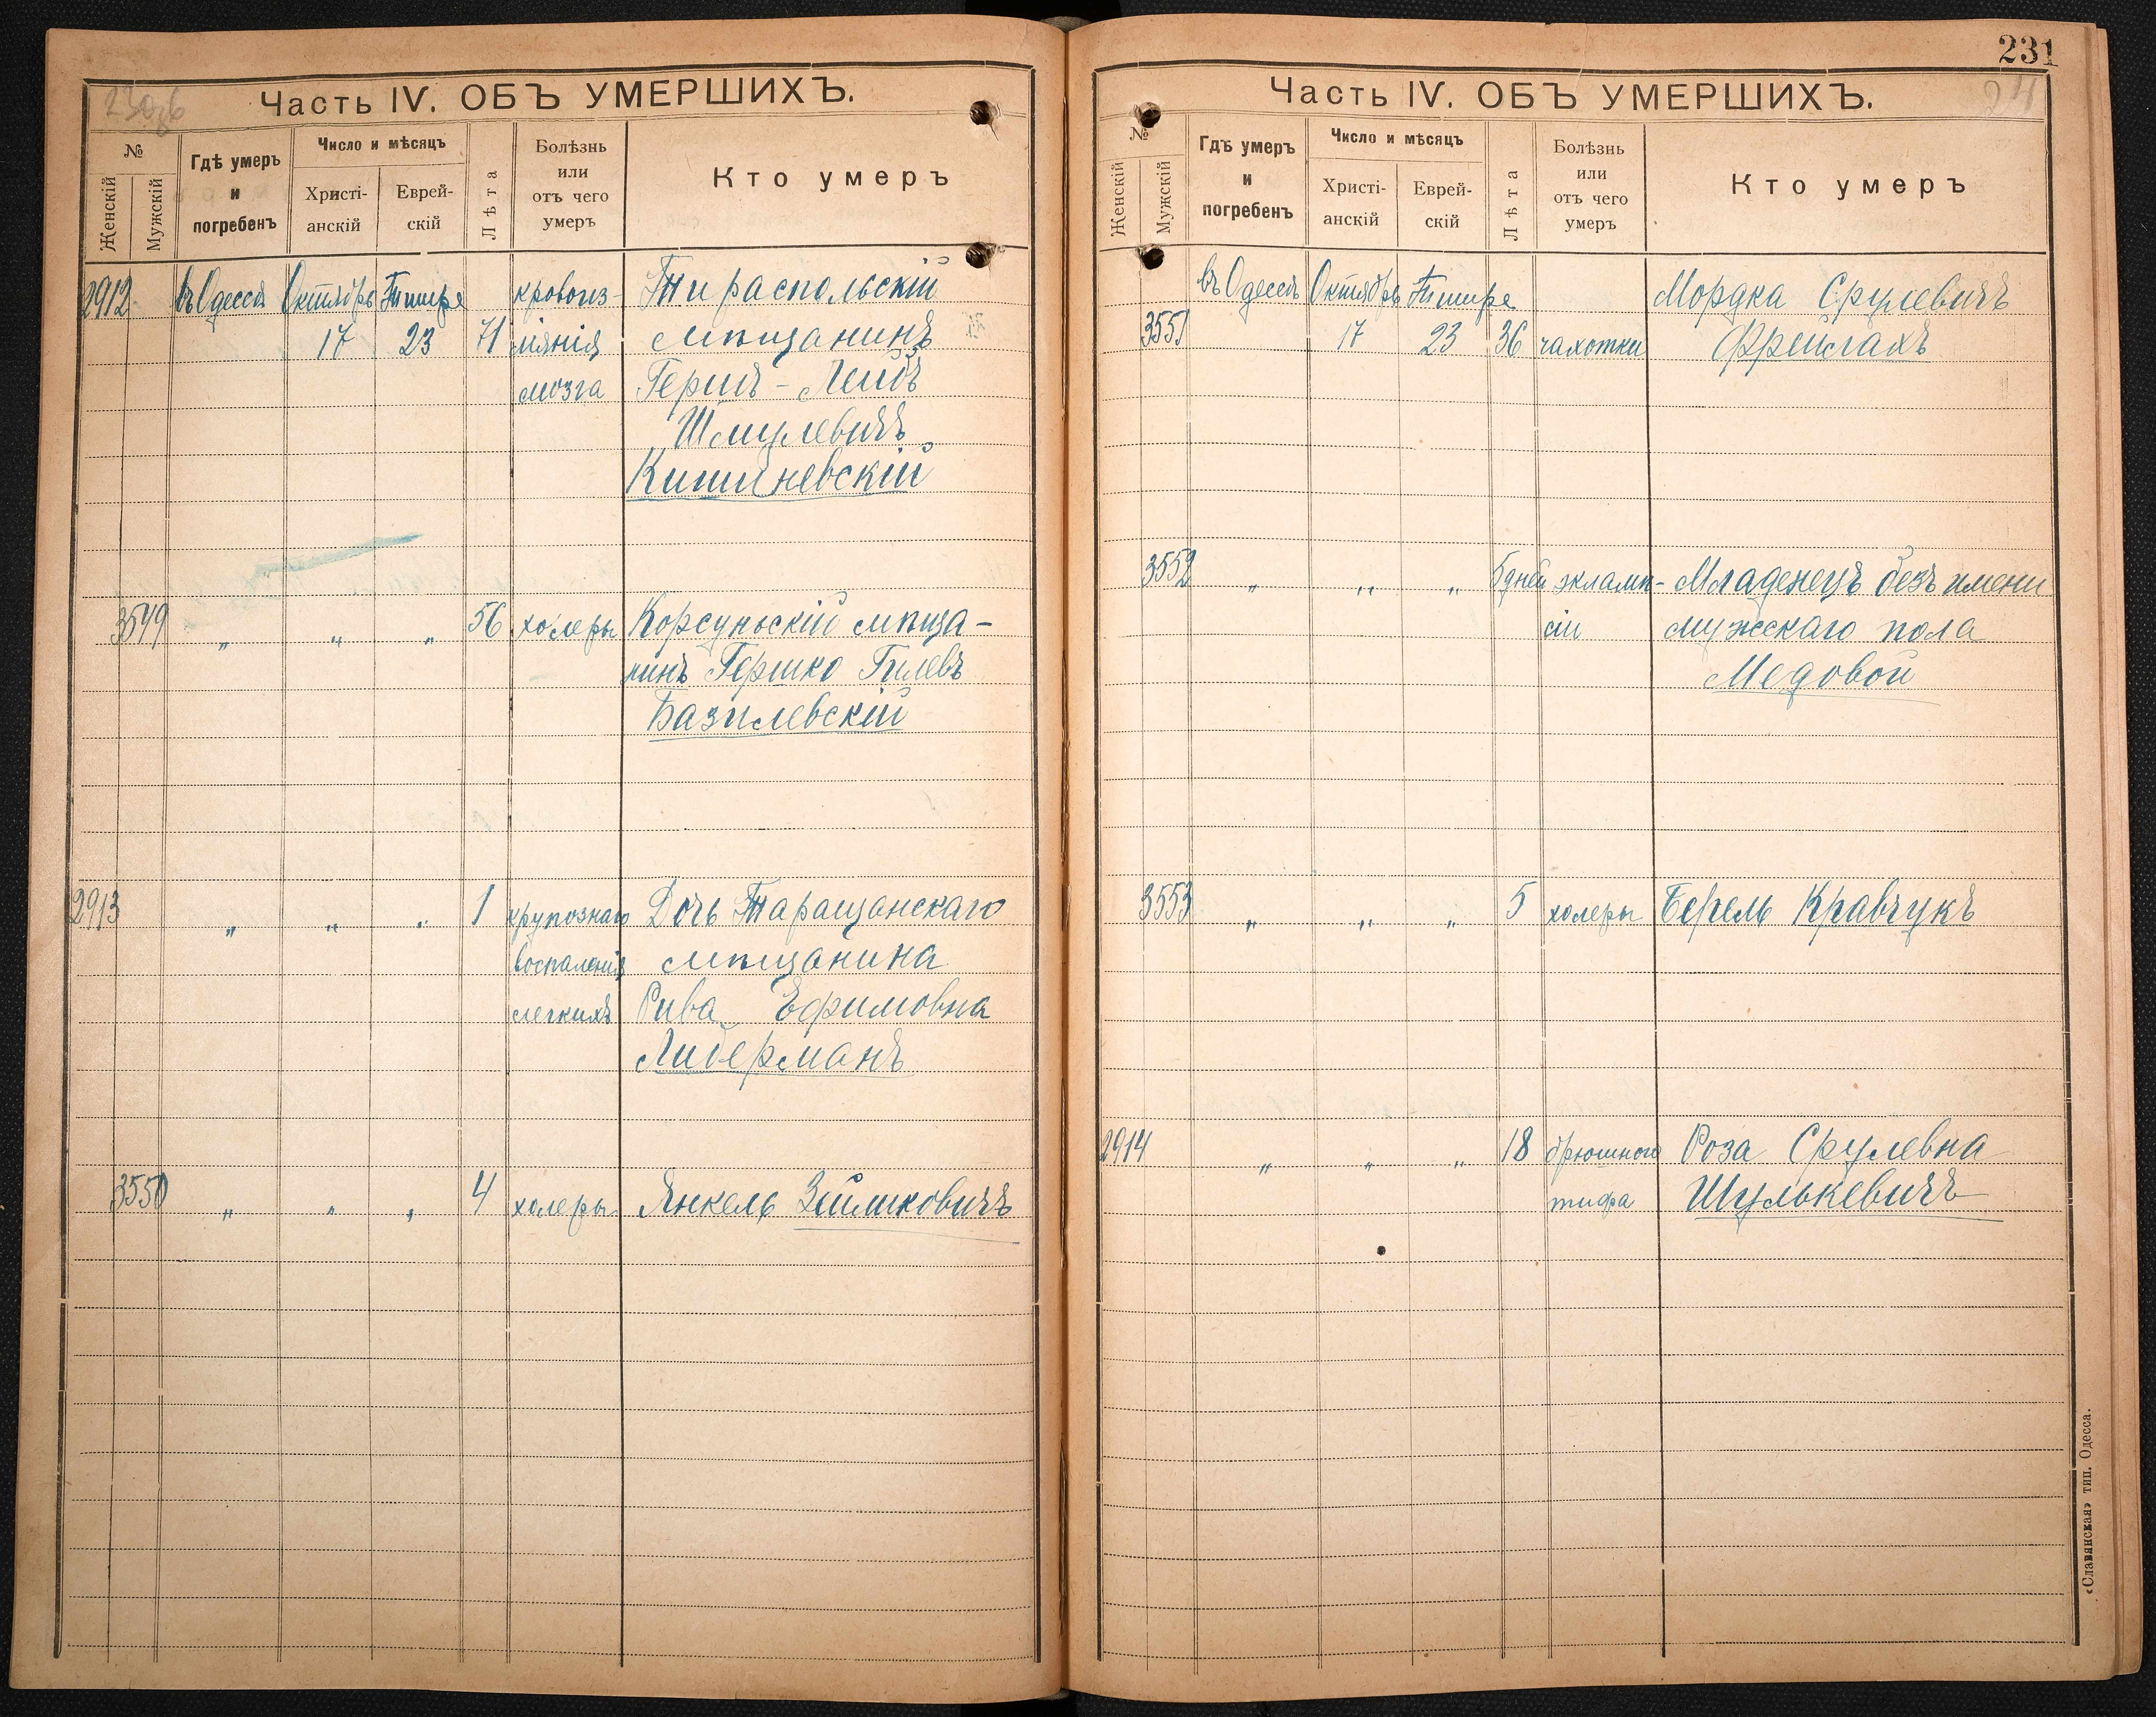 230об
Часть IV. ОБЪ УМЕРШИХЪ.
№
Женскій
Мужскій
Гдѣ умеръ
и
погребенъ
Число и мѣсяцъ
Христі-
анскій
Еврей-
скій
Лѣта
Болѣзнь
или
отъ чего
умеръ
Кто умеръ
2912 въ Одессѣ Октябрь Тишре кровоиз- Тираспольскій
17 23 71 ліянія мѣщанинъ
мозга Герш-Лейб
Шмулевичъ
Кишиневскій
3549 „ „ „ 56 холеры Корсуньскій мѣща-
нинъ Гершко Гилевъ
Базилевскій
2913 „ „ „ 1 крупознаго Дочь Таращанскаго
воспаленія мѣщанина
легкихъ Рива Ефимовна
Либерманъ
3550 „ „ „ 4 холеры Янкель Зильмковичъ
231
24
Часть IV. ОБЪ УМЕРШИХЪ.
№
Женскій
Мужскій
Гдѣ умеръ
и
погребенъ
Число и мѣсяцъ
Христі-
анскій
Еврей-
скій
Лѣта
Болѣзнь
или
отъ чего
умеръ
Кто умеръ
въ Одессѣ Октябрь Тишре Мордка Срулевичъ
3551 17 23 36 чахотки
3552 „ „ „ 5 дней эклами- Младенецъ безъ имени
сіи мужескаго пола
Медовой
3553 „ „ „ 5 холеры Берель Кравчукъ
2914 „ „ „ 18 брюшного Роза Срулевна
тифа Шулькевичъ
«Славянская» тип. Одесса.